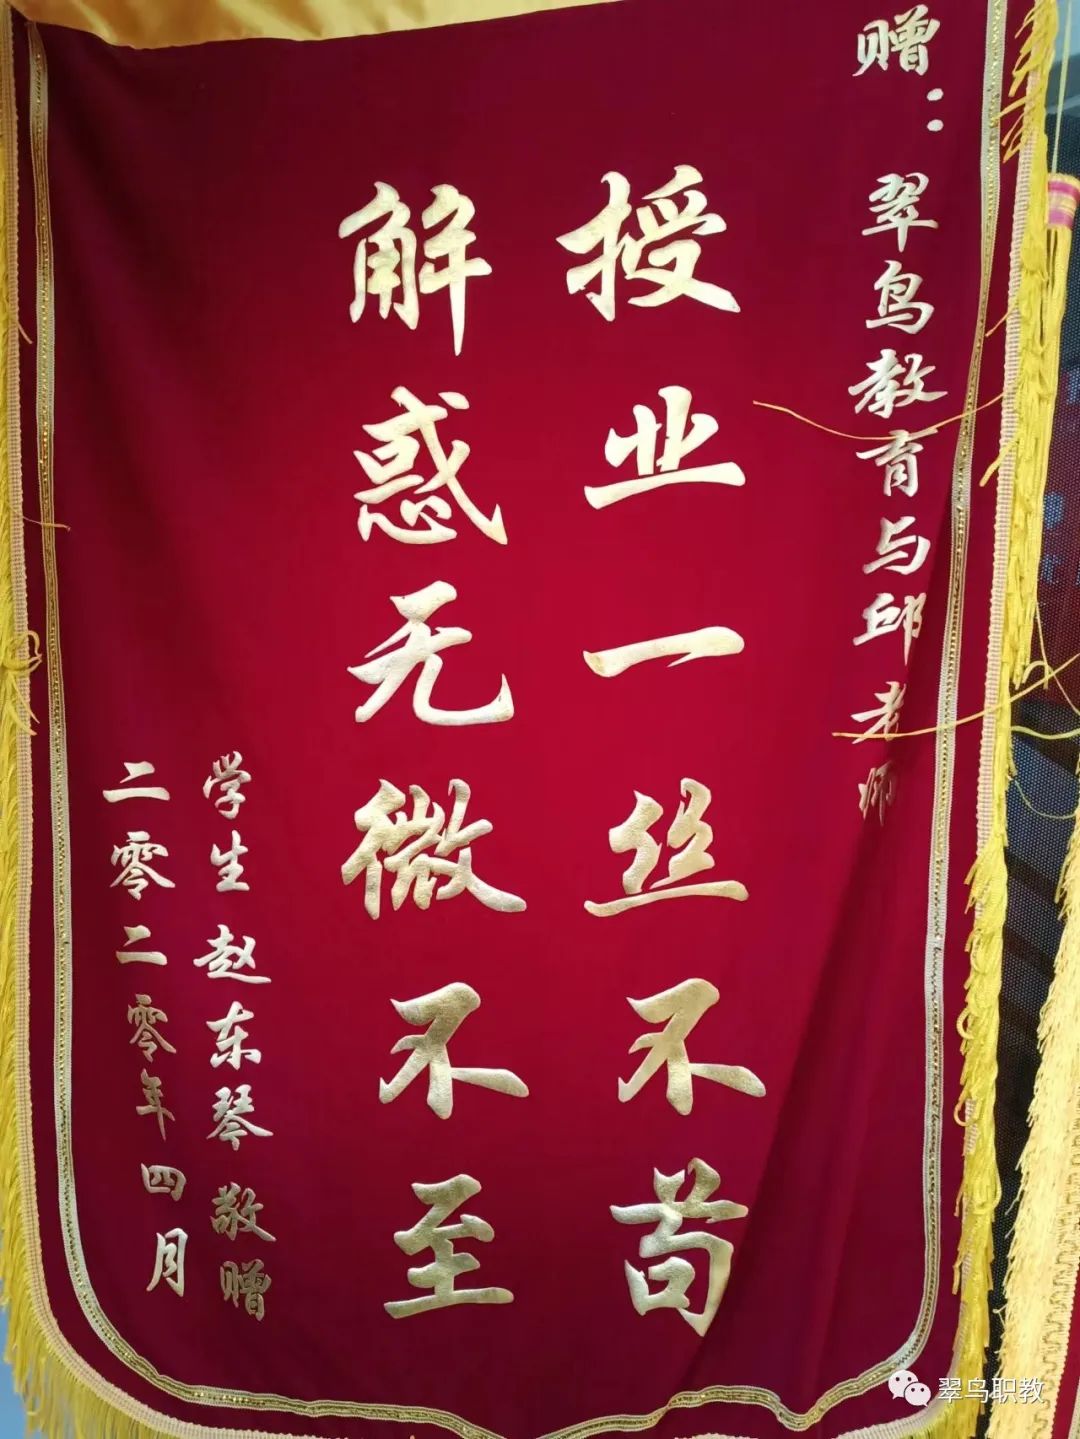 赠：翠鸟教育与邱老师
授业一丝不苟
解惑无微不至
学生赵东琴敬赠
二零二零年四月
翠鸟职教